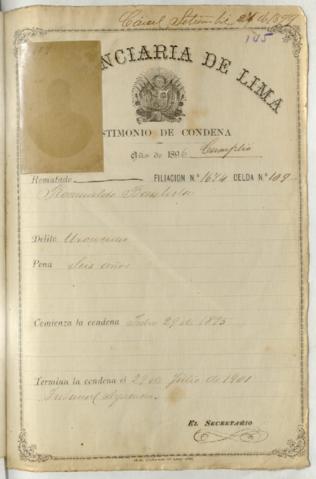 Cárcel, Setiembre 21 de 1899
145
NCIARIA DE LIMA
STIMONIO DE CONDENA
Año de 1896 Cumplió
Rematado FILIACION N.º 1674 CELDA N.º 109
Romualdo Bautista
Delito
Pena Seis años
Comienza la condena 29 de 1895
Termina la condena el 29 de Julio de 1901
EL SECRETARIO